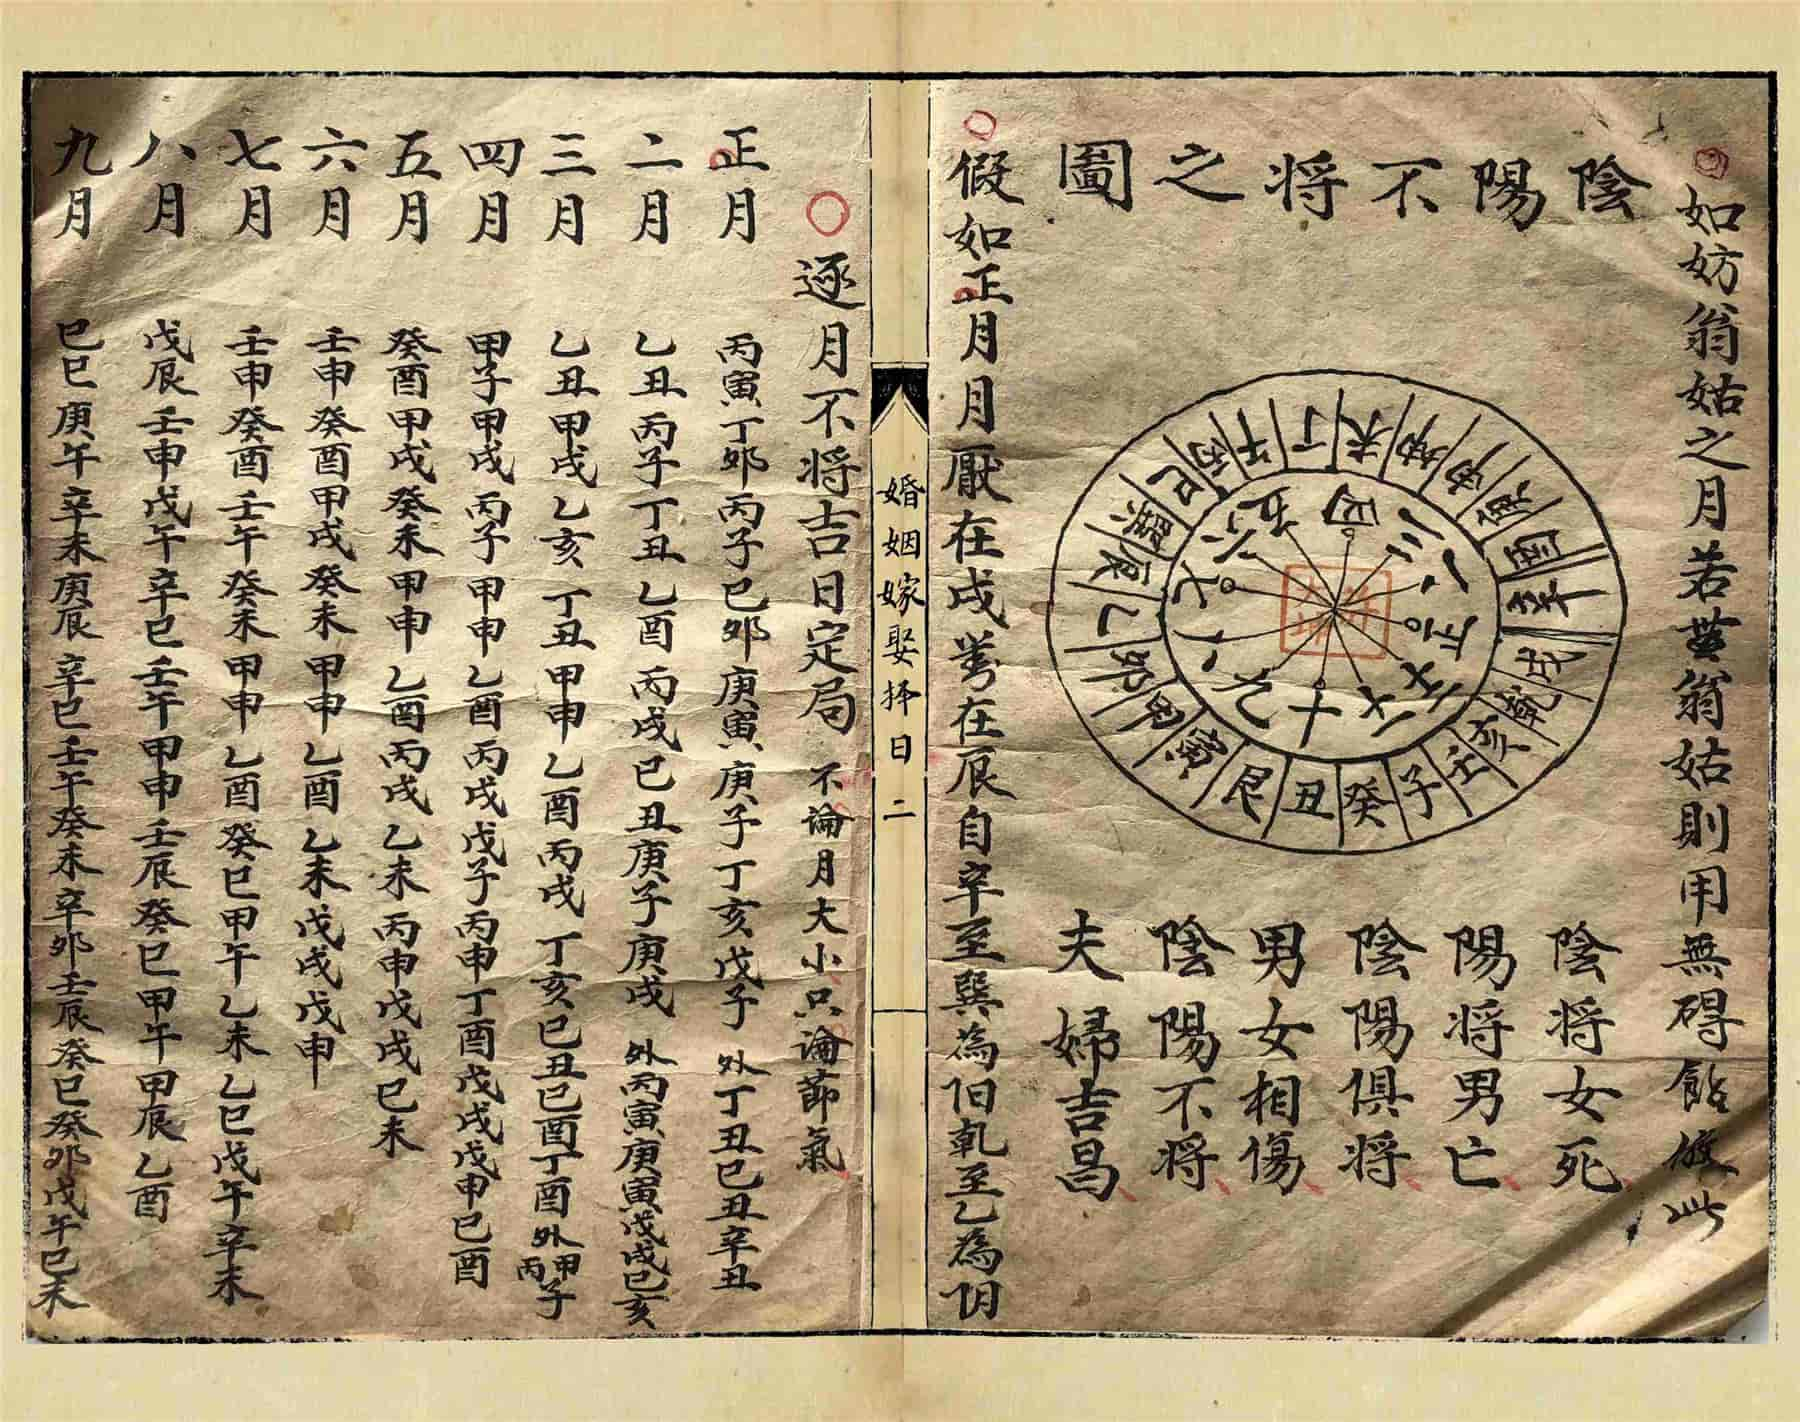 如妨翁姑之月若無翁姑則用無碍餘倣此
陰陽不将之圖
丁未坤申庚酉辛戌乾亥壬子癸丑艮寅甲卯乙辰巽巳丙午
陰将女死
陽将男亡
陰陽俱将
男女相傷
陰陽不将
夫婦吉昌
假如正月月厭在戌對在辰自辛至巽為阳乾至乙為阴
婚姻嫁娶择日 二
逐月不将吉日定局 不論月大小只論節氣
正月 丙寅丁卯丙子己卯庚寅庚子丁亥戊子 外丁丑己丑辛丑
二月 乙丑丙子丁丑乙酉丙戌己丑庚子庚戌 外丙寅庚寅戊戌己亥
三月 乙丑甲戌乙亥丁丑甲申乙酉丙戌丁亥己丑己酉丁酉 外甲子丙
四月 甲子甲戌丙子甲申乙酉丙戌戊子丙申丁酉戊戌戊申己酉
五月 癸酉甲戌癸未甲申乙酉丙戌乙未丙申戊戌己未
六月 壬申癸酉甲戌癸未甲申乙酉乙未戊戌戊申
七月 壬申癸酉壬午癸未甲申乙酉癸巳甲午乙未乙巳戊午辛未
八月 戊辰壬申戊午辛巳壬午甲申壬辰癸巳甲午甲辰乙酉
九月 己巳庚午辛未庚辰辛巳壬午癸未辛卯壬辰癸巳癸卯戊午己未